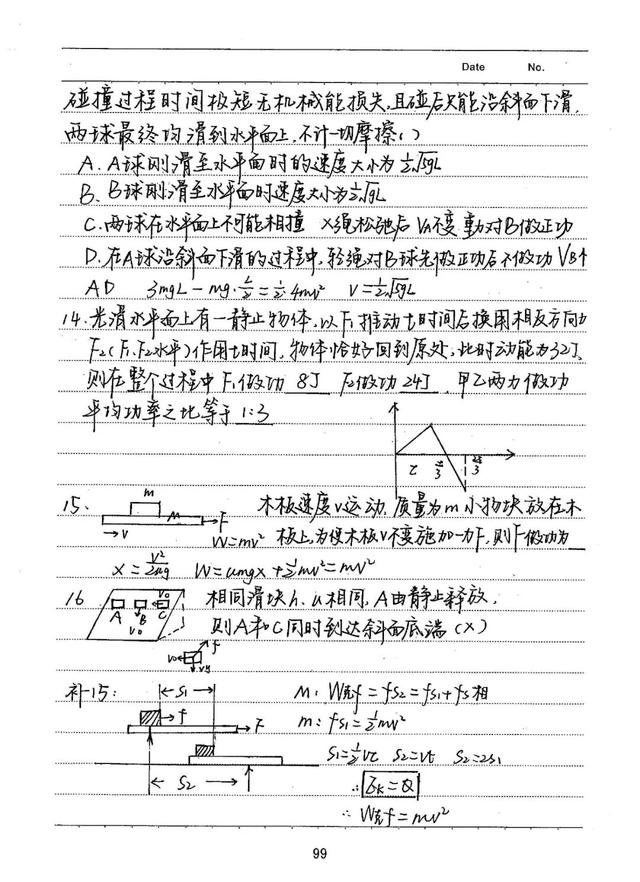 Date No.
碰撞过程时间极短无机械能损失,且碰后只能沿斜面下滑,
两球最终均滑到水平面上,不计一切摩擦()
A. A球刚滑至水平面时的速度大小为½√5gL
B. B球刚滑至水平面时速度大小为½√gL
C. 两球在水平面上不可能相撞 X绳松弛后 VA不变 重力对B做正功
D. 在A球沿斜面下滑的过程中,轻绳对B球先做正功后不做功 VB个
AD 3mgL - mg·L/2 = ½·4mv² v=½√5gL
14. 光滑水平面上有一静止物体,以F₁推动t时间后换用相反方向力
F₂(F₁、F₂水平)作用t时间,物体恰好回到原处,此时动能为32J,
则在整个过程中F₁做功 8J F₂做功 24J , 甲乙两力做功
平均功率之比等于 1:3
15. m M F v
木板速度v运动,质量为m小物块放在木
板上,为使木板v不变施加一力F,则F做功为
W=mv²
x=v²/2μg W=umgx+½mv²=mv²
16 A B C v₀ v₀
相同滑块h、u相同,A由静止释放,
则A和C同时到达斜面底端(×)
v₀ f vy
补15: S₁ f F S₂
M: W克f=fS₂=fS₁+fS相
m: fS₁=½mv²
S₁=½vt S₂=vt S₂=2S₁
∴ Ek=Q
∴ W克f=mv²
99